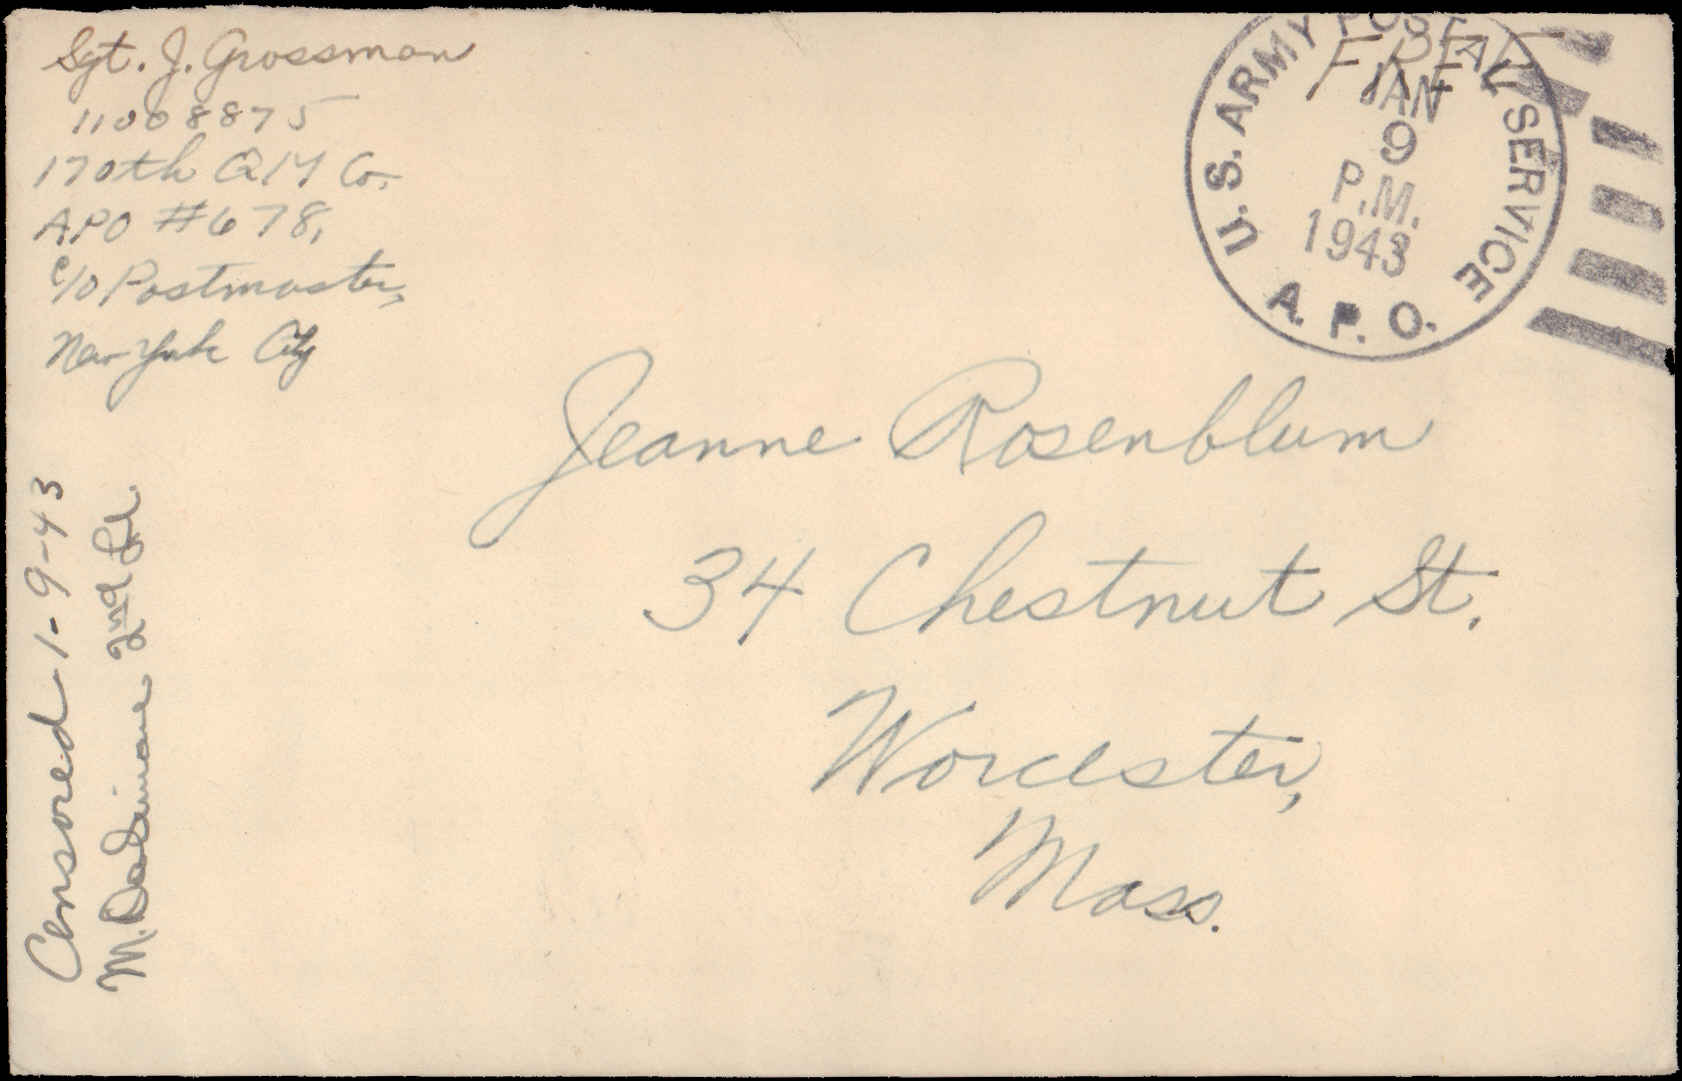 Sgt. J. Grossman
11008875
170th QM Co.
APO #678,
c/o Postmaster,
New York City
U.S. ARMY POSTAL SERVICE
A.P.O.
JAN
9
P.M.
1943
FREE
Jeanne Rosenblum
34 Chestnut St.
Worcester,
Mass.
Censored 1-9-43
M. 2nd Lt.